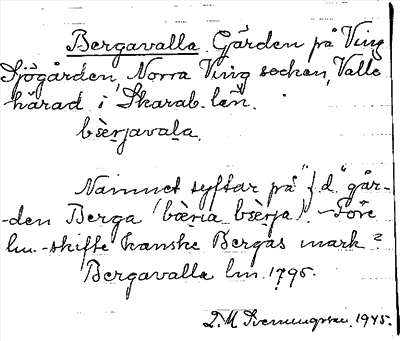 Bergavalla. Gärden på Ving
Sjögården, Norra Ving socken, Valle
härad i Skarab. län.
bèrjavala.
Namnet syftar på f.d. går-
-den Berga (bæ̀rja bèrja). Före
lm.-skifte kanske Bergas mark?
Bergavalla lm. 1796.
1945.